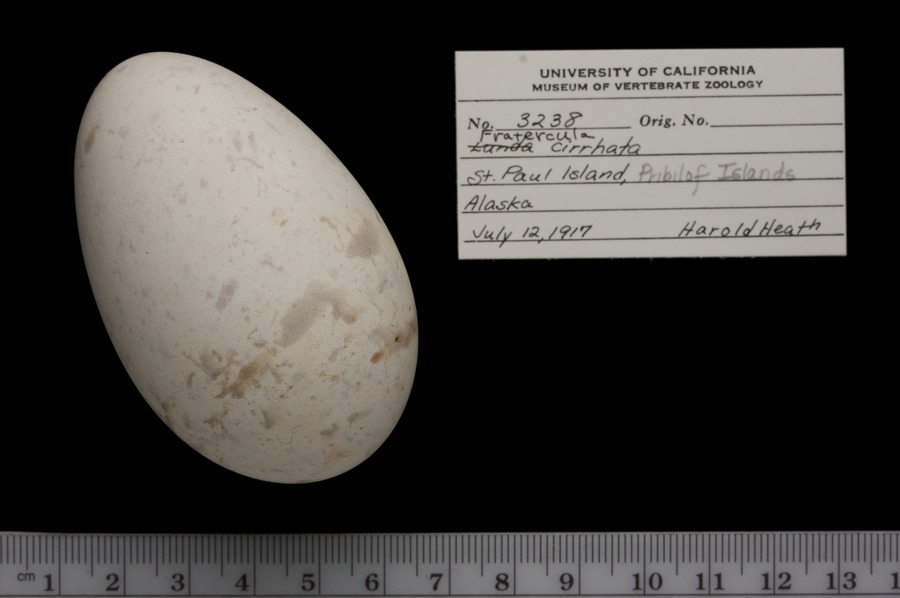 UNIVERSITY OF CALIFORNIA
MUSEUM OF VERTEBRATE ZOOLOGY
No. 3238 Orig. No.
Fratercula
Lunda Cirrhata
St. Paul Island, Pribilof Islands
Alaska
July 12, 1917 Harold Heath
cm 1 2 3 4 5 6 7 8 9 10 11 12 13 1